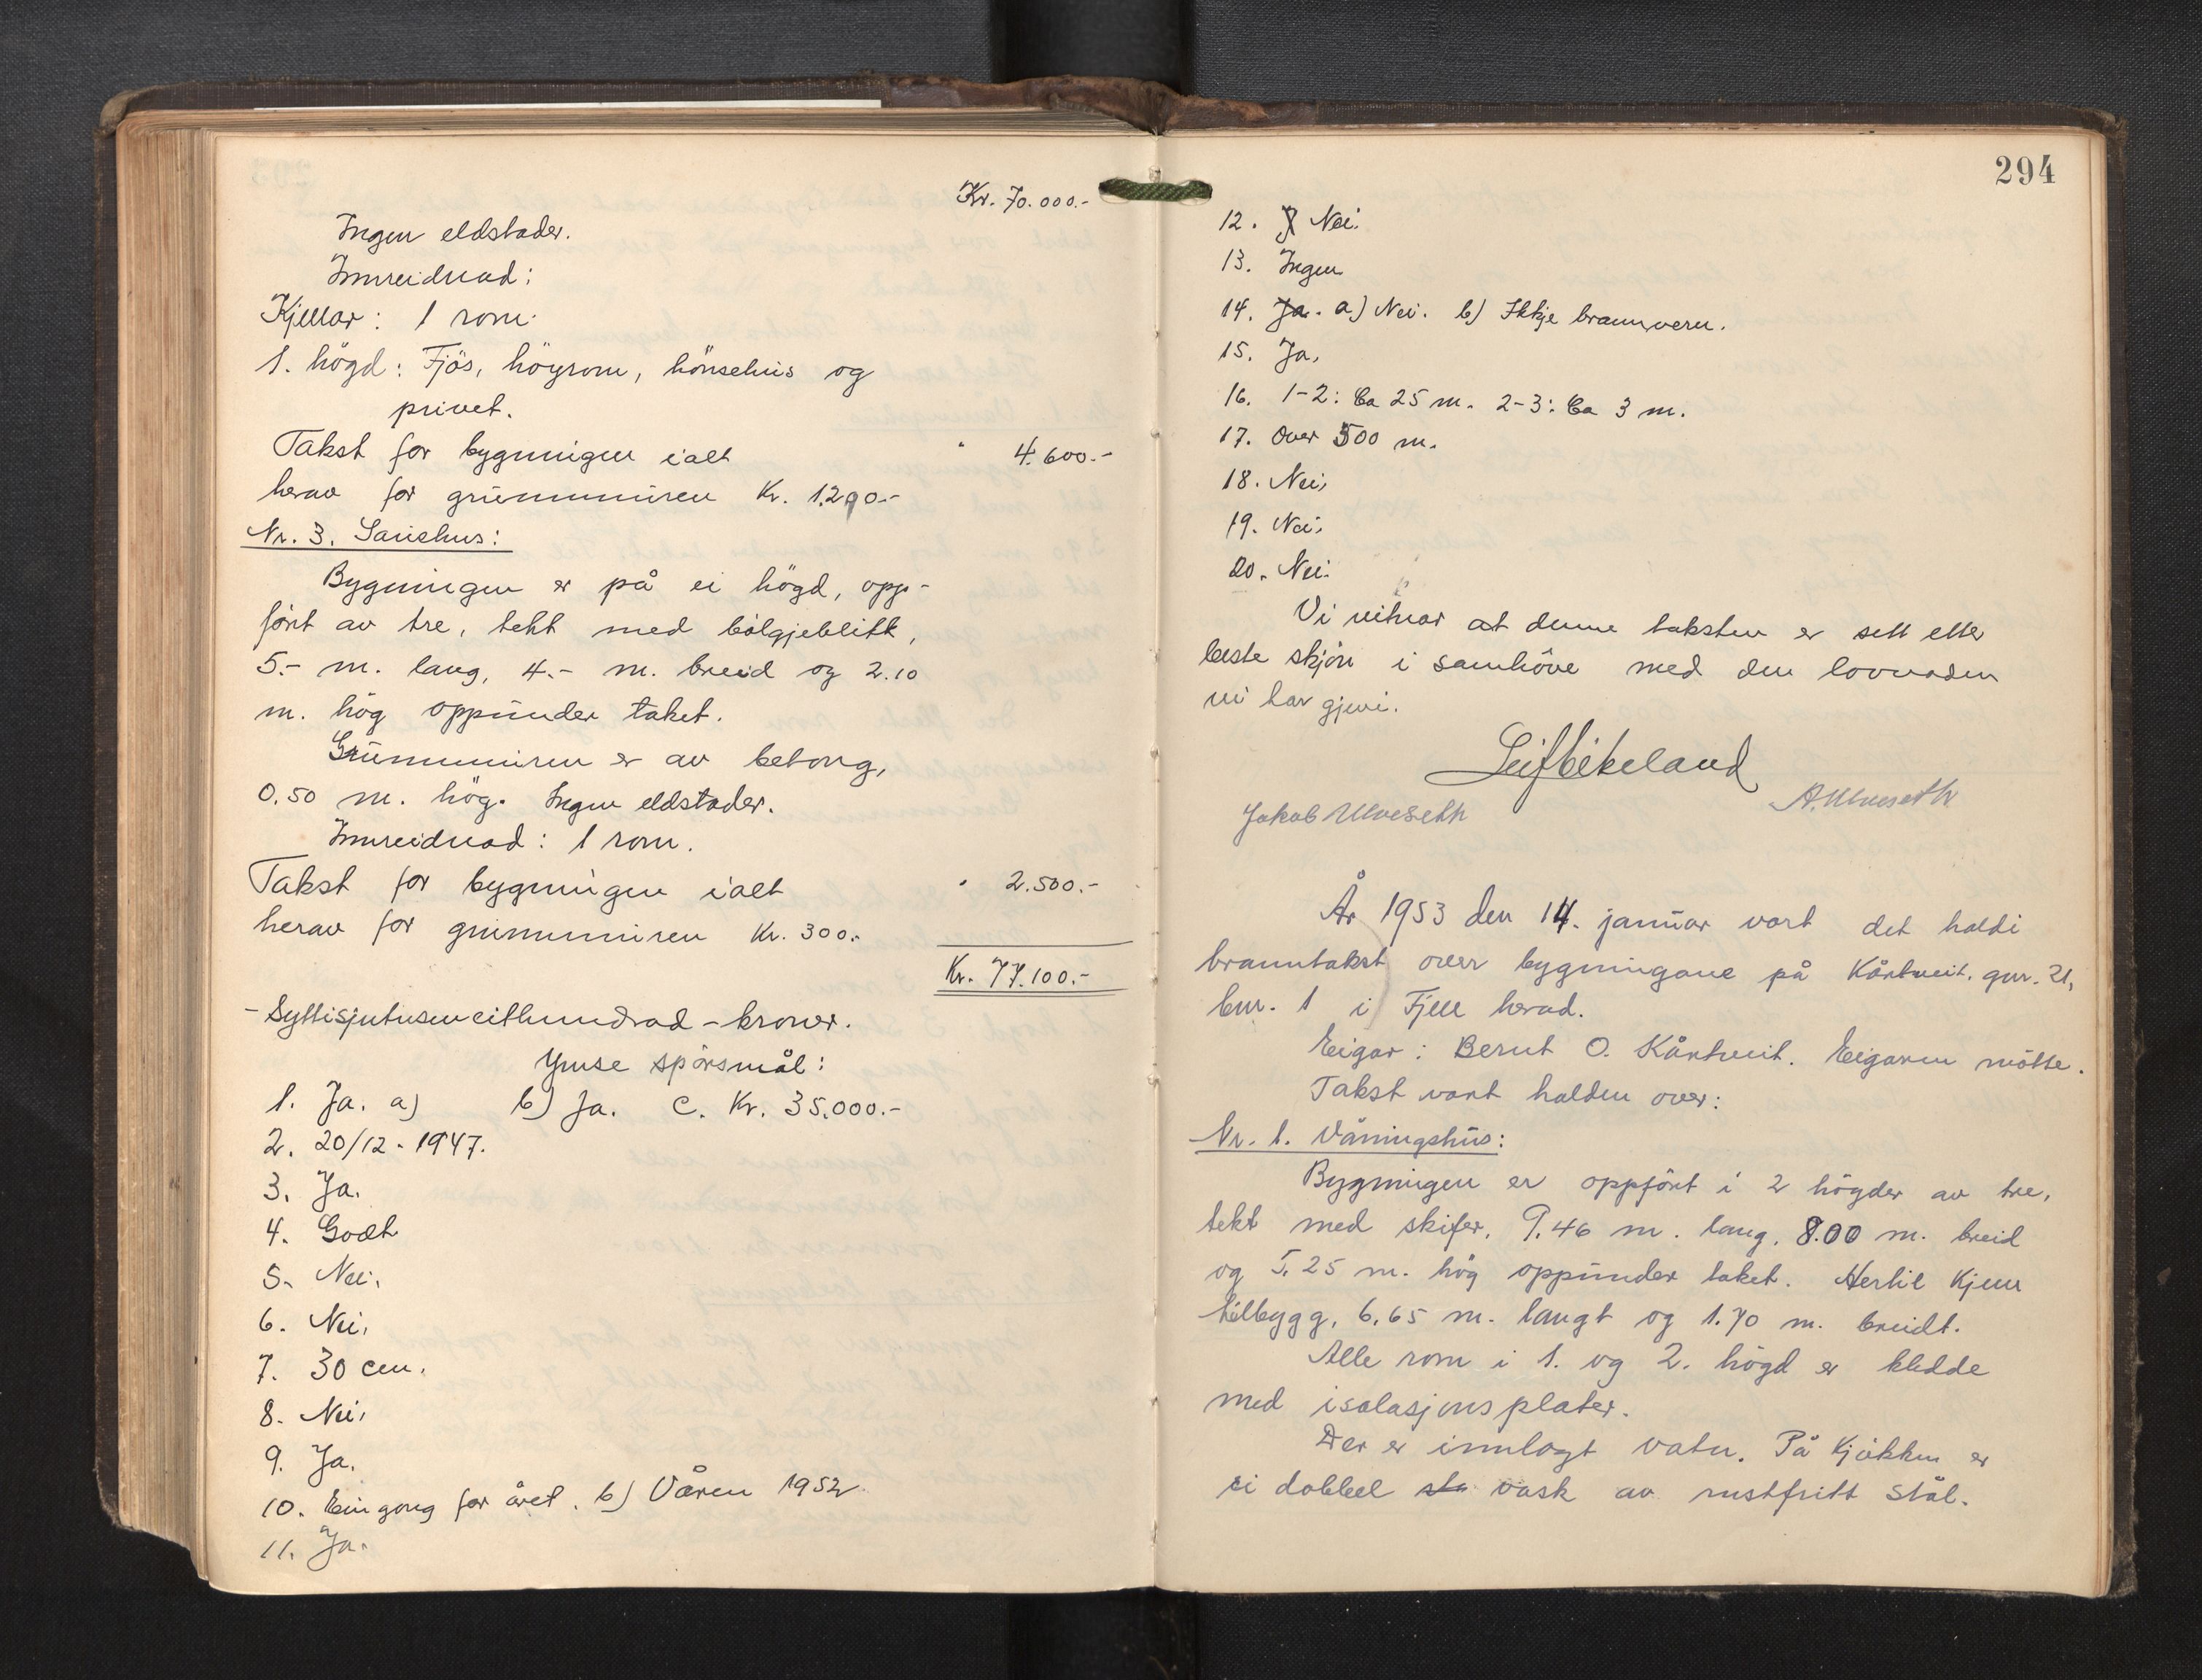 Kr. 70.000.-
Ingen eldstader.
Innreidnad:
Kjellar: 1 rom.
1. högd: Fjös, höyrom, hönsehus og
privet.
Takst for bygningen ialt " 4.600.-
herav for grunnmuren Kr. 1.200.-
Nr. 3.
Bygningen er på ei högd, opp-
fört av tre, tekt med bölgjeblikk,
5.- m. lang, 4.- m. breid og 2.10
m. hög oppunder taket.
Grunnmuren er av betong,
0.50 m. hög. Ingen eldstader.
Innreidnad: 1 rom.
Takst for bygningen ialt " 2.500.-
herav for grunnmuren Kr. 300.-
Kr. 77.100.-
- Syttisjutuseneitthundrad - kroner.
Ymse spörsmål:
1. Ja. a) b) Ja. c. Kr. 35.000.-
2. 20/12 - 1947.
3. Ja.
4. Godt
5. Nei.
6. Nei.
7. 30 cm.
8. Nei.
9. Ja.
10. Ein gong for året. b) Våren 1952.
11. Ja.
294
12. J Nei.
13. Ingen
14. Ja. a) Nei. b) Ikkje brannvern.
15. Ja.
16. 1-2: Ca 25 m. 2-3: Ca 3 m.
17. Over 500 m.
18. Nei.
19. Nei.
20. Nei.
Vi vitnar at denne taksten er sett etter
beste skjön i samhöve med den lovnaden
vi har gjevi.
Leif Ekeland
Jakob Ulveseth A. Ulveseth
År 1953 den 14. januar vart det haldi
branntakst over bygningane på Kårtveit, gnr. 21,
bnr. 1 i Fjell herad.
Eigar: Bernt O. Kårtveit. Eigaren mötte.
Takst vart halden over:
Nr. 1. Våningshus:
Bygningen er oppfört i 2 högder av tre,
tekt med skifer, 9.46 m. lang, 8.00 m. breid
og 5.25 m. hög oppunder taket. Hertil kjem
tilbygg, 6.65 m. langt og 1.70 m. breidt.
Alle rom i 1. og 2. högd er kledde
med isolasjonsplater.
Der er innlagt vatn. På kjökken er
ei dobbel sta vask av rustfritt stål.